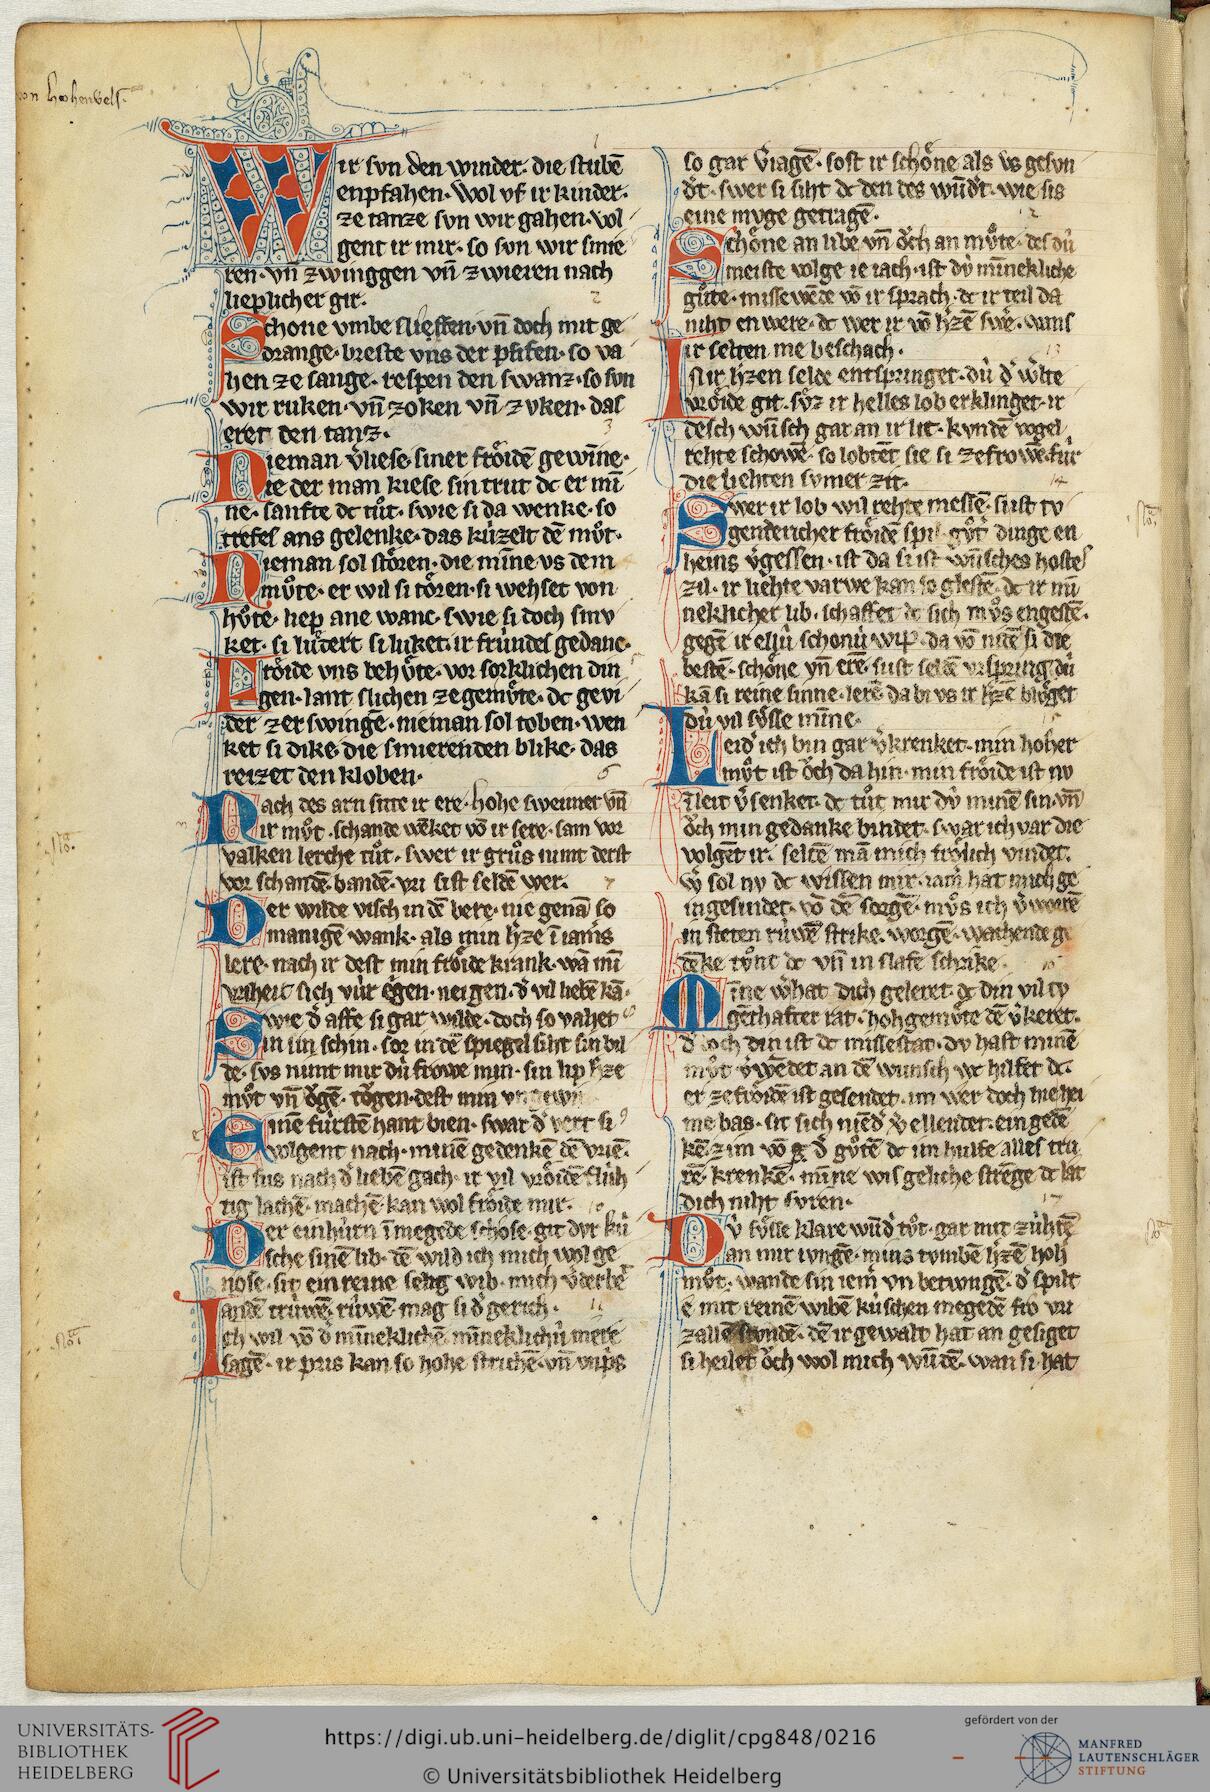 von hohenvels.
Wir svn den winder. die stubē
enpfahen. wol vf ir kinder.
ze tanze svn wir gahen. vol
gent ir mir. so svn wir smie
ren. vn̄ zwinggen vn̄ zwieren nach
lieplicher gir.
2
Schone vmbe slieffen. vn̄ doch mit ge
drange. breste vns der pfifen. so va
hen ze sange. respen den swanz. so svn
wir ruken. vn̄ zoken vn̄ zvken. das
eret den tanz.
3
Nieman v̄liese. siner froͤidē gewīne.
Ie der man kiese sin trut dc er mī
ne. sanfte dc tuͦt. swie si da wenke. so
trefes ans gelenke. das kúzelt dē mvͦt.
Nieman sol stoͤren. die mīne vs dem
mvͦte. er wil si toͤren. si wehset von
hvͦte. liep ane wanc. swie si doch smv
ket. si luͤdert si luket. ir fründes gedanc.
Froͤide vns behvͤte. vor sorklichen din
gen. lant slichen ze gemvͤte. dc gevi
der zer swingē. nieman sol toben. wen
ket si dike. die smierenden blike. das
reizet den kloben.
6
Nach des arn sitte ir ere. hohe sweimet vn̄
ir mvͦt. schande wēket vō ir sere. sam vor
valken lerche tuͦt. swer ir gruͦs nimt derst
vor schandē. bandē. vri sist seldē wer.
7
Der wilde visch in dē bere. nie genā so
manigē wank. als min h̄ze ī iam̄s
lere. nach ir dest min froͤide krank. wā mī
vriheit sich vúr eīgen. neigen. d̄ vil liebē kā.
Swie d̄ affe si gar wilde. doch so vahet
in sin schin. sor in dē spiegel siht sin bil
de. svs nimt mir dú frowe min. sin lip h̄ze
mvͦt vn̄ oͮgē. toͮgen. dest min
Einē fúrstē hant bien. swar d̄ vert si
volgent nach. minē gedenkē dē vrīe.
ist sus nach d̄ liebē gach. ir vil vroͤidē flúh
tig lachē. machē. kan wol froͤide mir.
10
Der einhúrn ī megede schose. git dvr kú
sche sinē lib. dē wild ich mich wol ge
nose. sit ein reine selig wib. mich v̄derbe
andē trúwē. rúwē. mag si d̄ gerich.
11
Ich wil vō d̄ mīneklichē. mīneklichú mere
sagē. ir pris kan so hohe strichē. vn̄ vnps
so gar v̄iagē. sost ir schoͤne als vs gesvn
d̄t. swer si siht dc den des wūd̄t. wie sis
eine mvge getragē.
12
Schoͤne an libe vn̄ oͮch an mvͦte. des dú
meiste volge ie iach. ist dú mīnekliche
guͤte. missewēde vō ir sprach. dc ir teil da
niht en were. dc wer ir vō h̄zē sw̄e. wans
ir selten me beschach.
13
Ist ir h̄zen selde entspringet. dú d̄ w̄lte
vroͤide git. svͤz ir helles lob erklinget. ir
desch wūsch gar an ir lit. kvndē vogel
rehte schowē. so lobtēt sie si ze frowē. fúr
die liehten svmer zit.
14
Swer ir lob wil rehte messē. si ist tv
gendericher froͤidē spil. guͦt̄ dinge en
heins v̄gessen. ist da si ist wūsches hostes
zil. ir liehte varwe kan so glestē. dc ir mī
neklicher lib. schaffet dc sich mvͦs engestē.
gegē ir ellú schonú wip. da vō nidē si die
bestē. schoͤne vn̄ erē. sust seldē vrspring dú
kā si reine sinne. lerē da bi vs ir h̄zē blvͤget
dú vil svͤsse mīne.
Leid̄ ich bin gar v̄krenket. min hoher
mvͦt ist oͮch da hin. min froͤide ist nv
ī leit v̄senket. dc tuͦt mir dú minē sin. vn̄
oͮch min gedanke bindet. swar ich var die
volgēt ir. seltē mā mich froͤlich vindet.
sol nv dc wissen mir. iam̄ hat mich ge
ingesindet. vō dē sorgē. mvͦs ich v̄worrē
in steten rúwē strike. worgē. wachende ge
dēke dc vn̄ in slafe schrike.
16
Mīne w̄ hat dich geleret. dc din vil tv
gēthafter rat. hohgemvͤte dē v̄keret.
d̄ doch din ist dc missestat. dv hast minē
mvͦt v̄wēdet an dē wunsch w hilfet dc.
er ze froͤidē ist gesendet. im wer doch hie hei
me bas. sit sich niēd̄ v̄ellendet. ein gedē
kē. zim vō d̄ guͤtē dc im hulfe alles tru
rē. krenkē. mīne wis geliche strēge dc lat
dich niht svren.
17
Dv svͤsse klare wūd̄ tvͦt. gar mit zúhtē
an mir ivngē. mins tvmbē h̄zē hoh
mvͦt. wande sin iem̄ vn betwūgē. d̄ spilt
e mit reinē wibē kúschen megedē fro vn
zallē stvndē. dē ir gewalt hat an gesiget
si heilet oͮch wol mich wūdē. wan si hat
UNIVERSITÄTS-
BIBLIOTHEK
HEIDELBERG
https://digi.ub.uni-heidelberg.de/diglit/cpg848/0216
© Universitätsbibliothek Heidelberg
gefördert von der
MANFRED
LAUTENSCHLÄGER
STIFTUNG